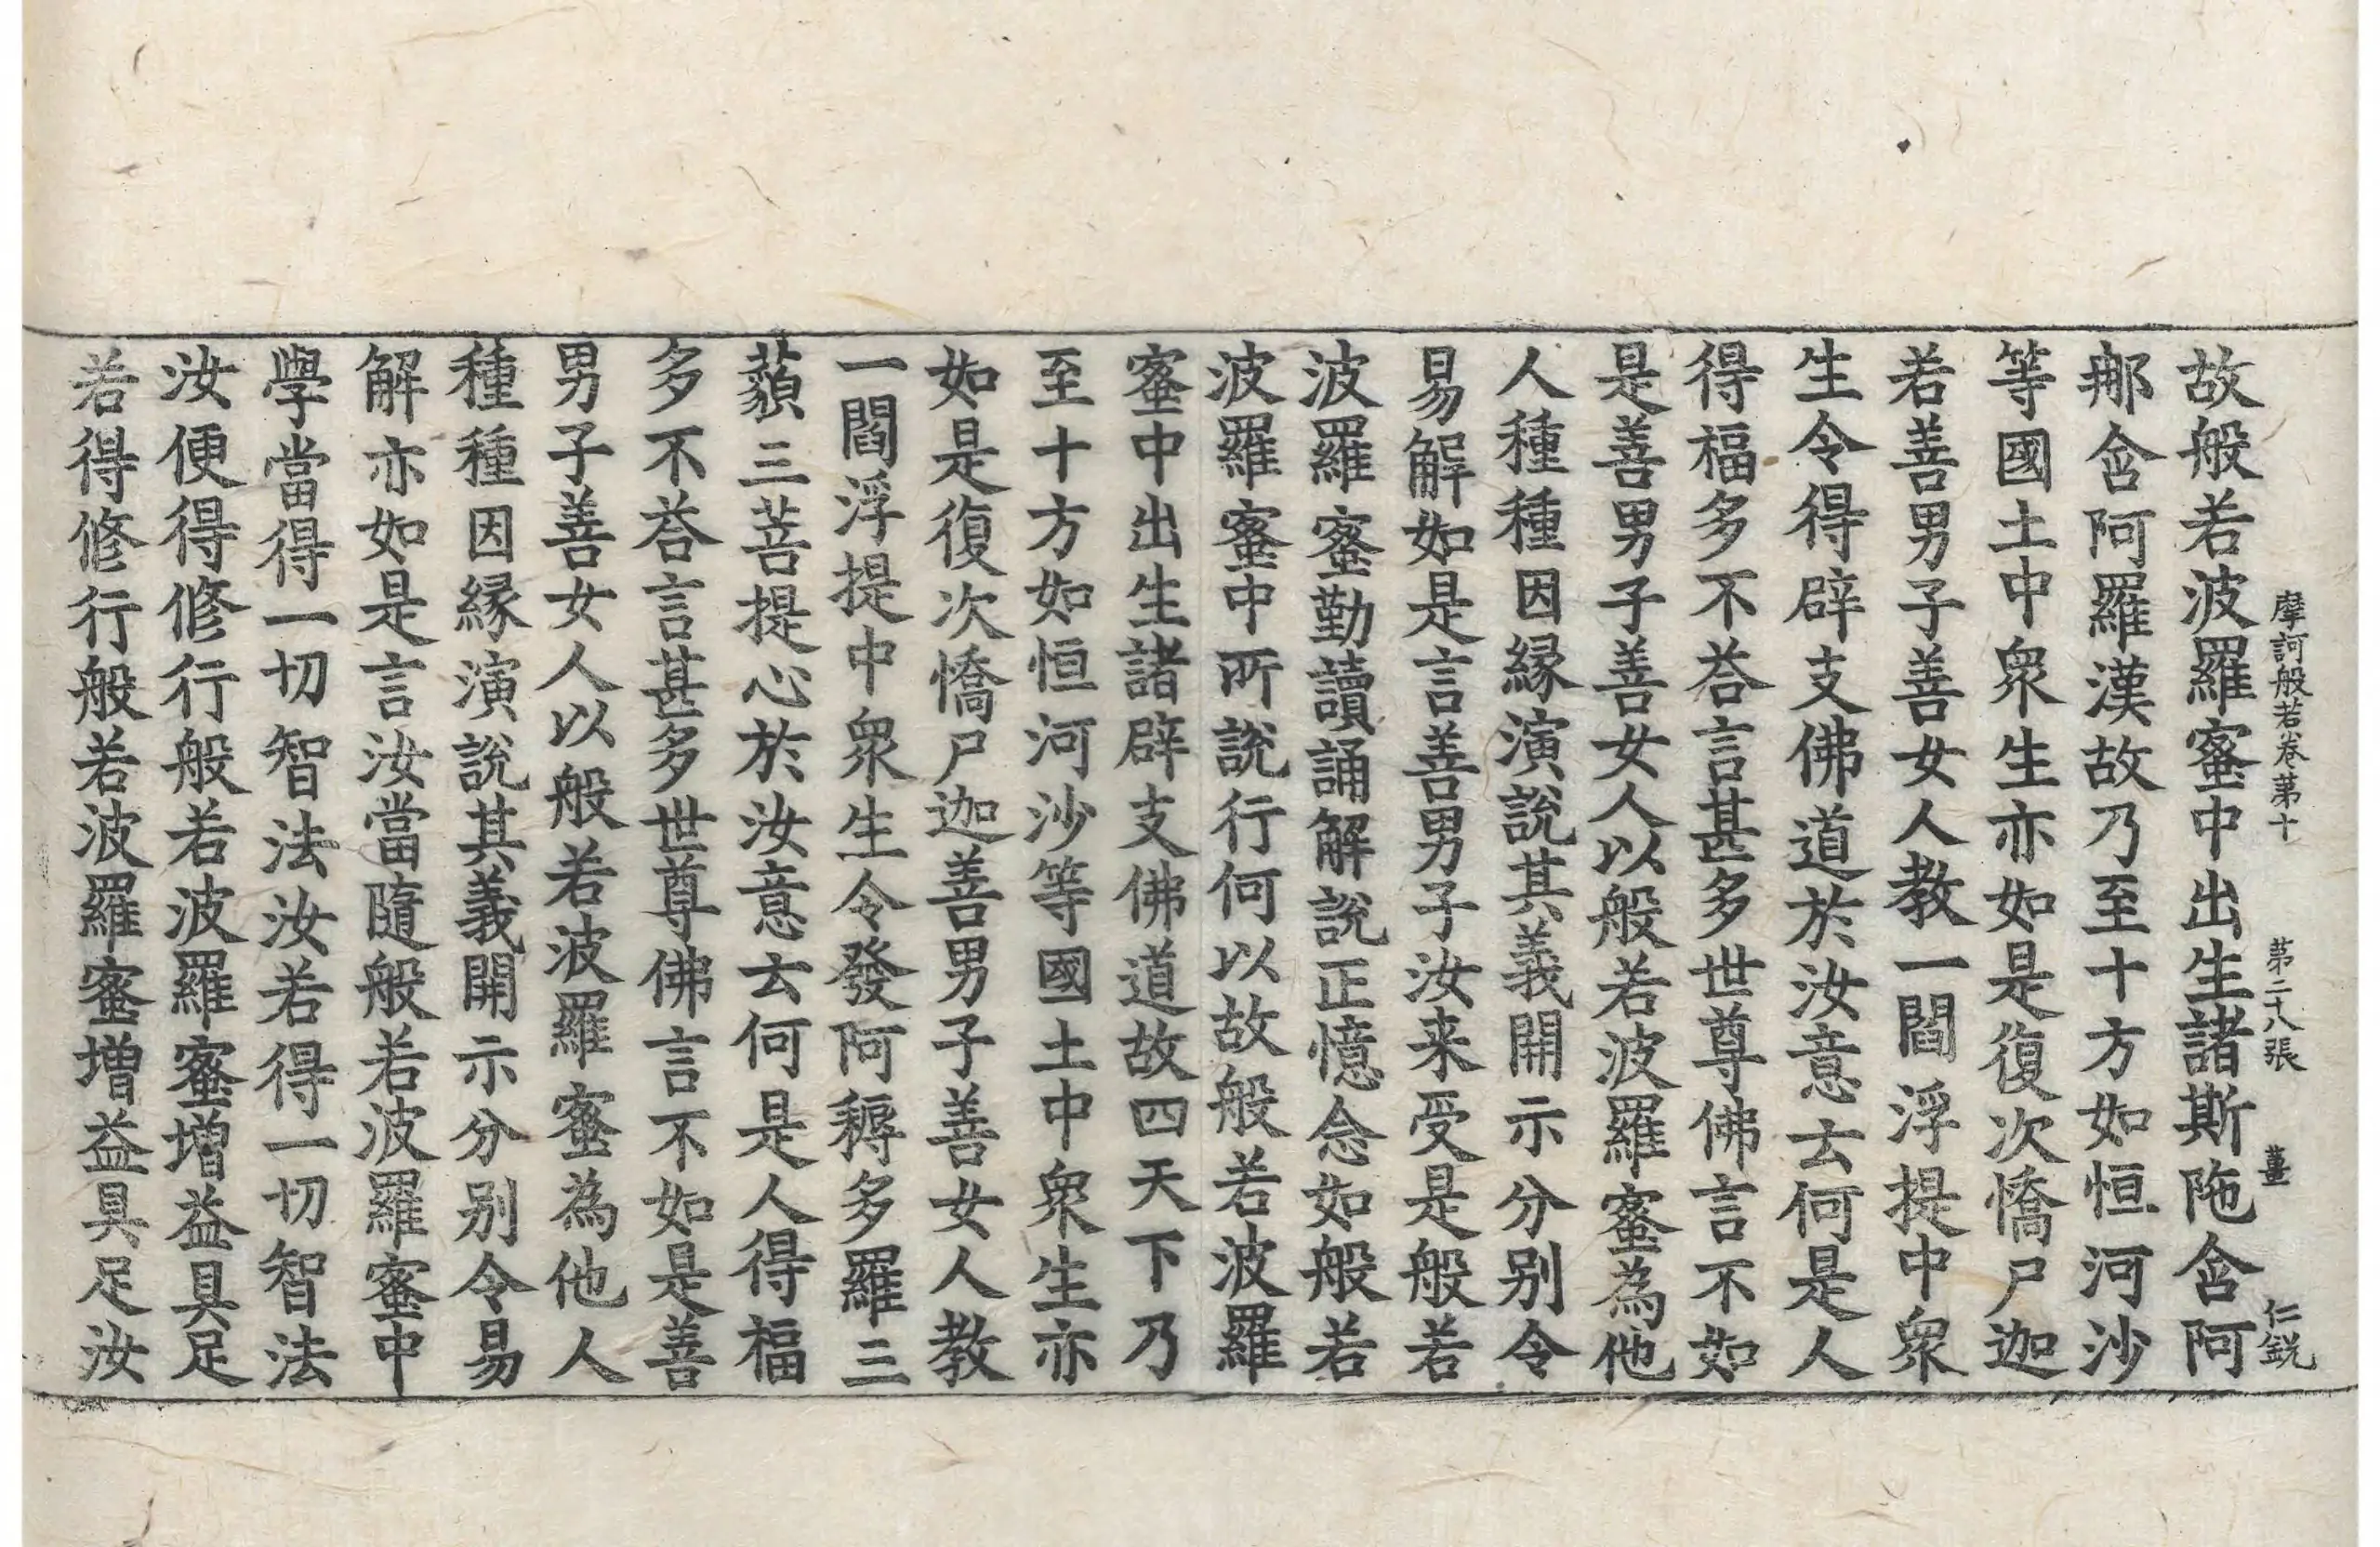 摩訶般若卷第十 第二十八張 薑 仁銳
故般若波羅蜜中出生諸斯陁含阿
那含阿羅漢故乃至十方如恒河沙
等國土中衆生亦如是復次憍尸迦
若善男子善女人教一閻浮提中衆
生令得辟支佛道於汝意云何是人
得福多不荅言甚多世尊佛言不如
是善男子善女人以般若波羅蜜為他
人種種因緣演說其義開示分別令
易解如是言善男子汝来受是般若
波羅蜜勤讀誦解說正憶念如般若
波羅蜜中所說行何以故般若波羅
蜜中出生諸辟支佛道故四天下乃
至十方如恒河沙等國土中衆生亦
如是復次憍尸迦善男子善女人教
一閻浮提中衆生令發阿耨多羅三
藐三菩提心於汝意云何是人得福
多不荅言甚多世尊佛言不如是善
男子善女人以般若波羅蜜為他人
種種因緣演說其義開示分別令易
解亦如是言汝當隨般若波羅蜜中
學當得一切智法汝若得一切智法
汝便得修行般若波羅蜜增益具足
若得修行般若波羅蜜增益具足汝